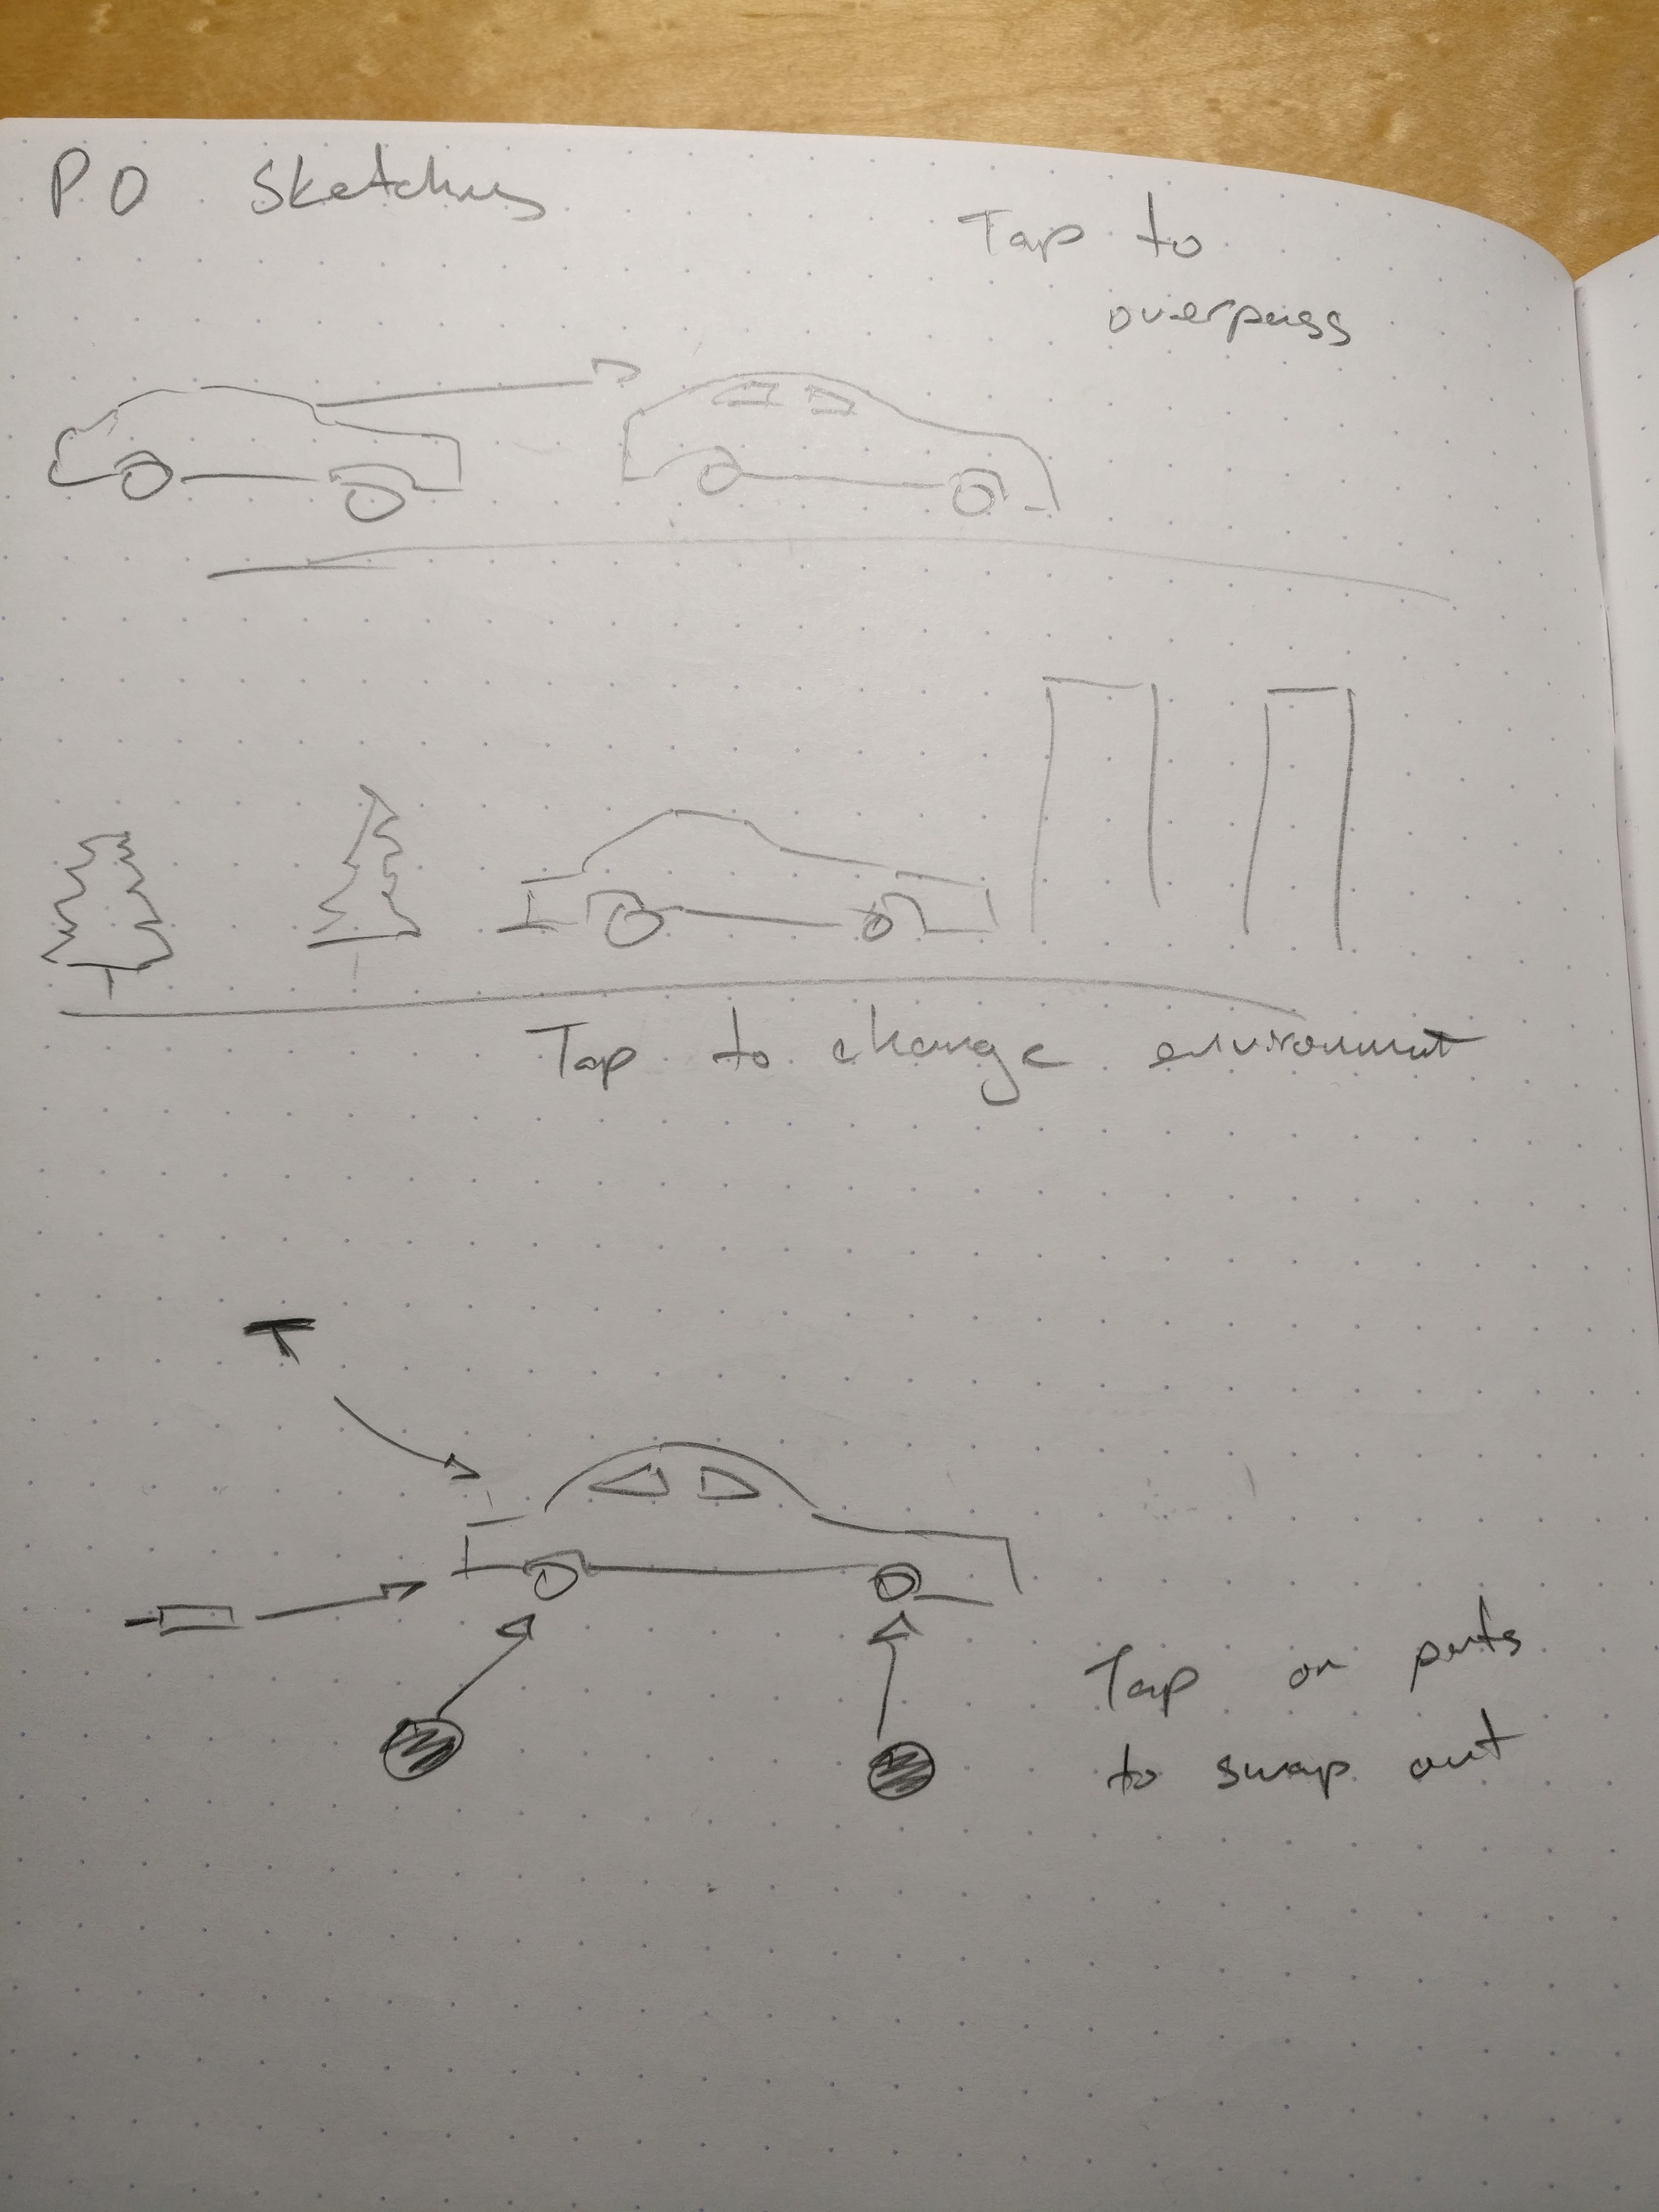 PO Sketches
Tap to
overpass
Tap to change environment
Tap on parts
to swap out